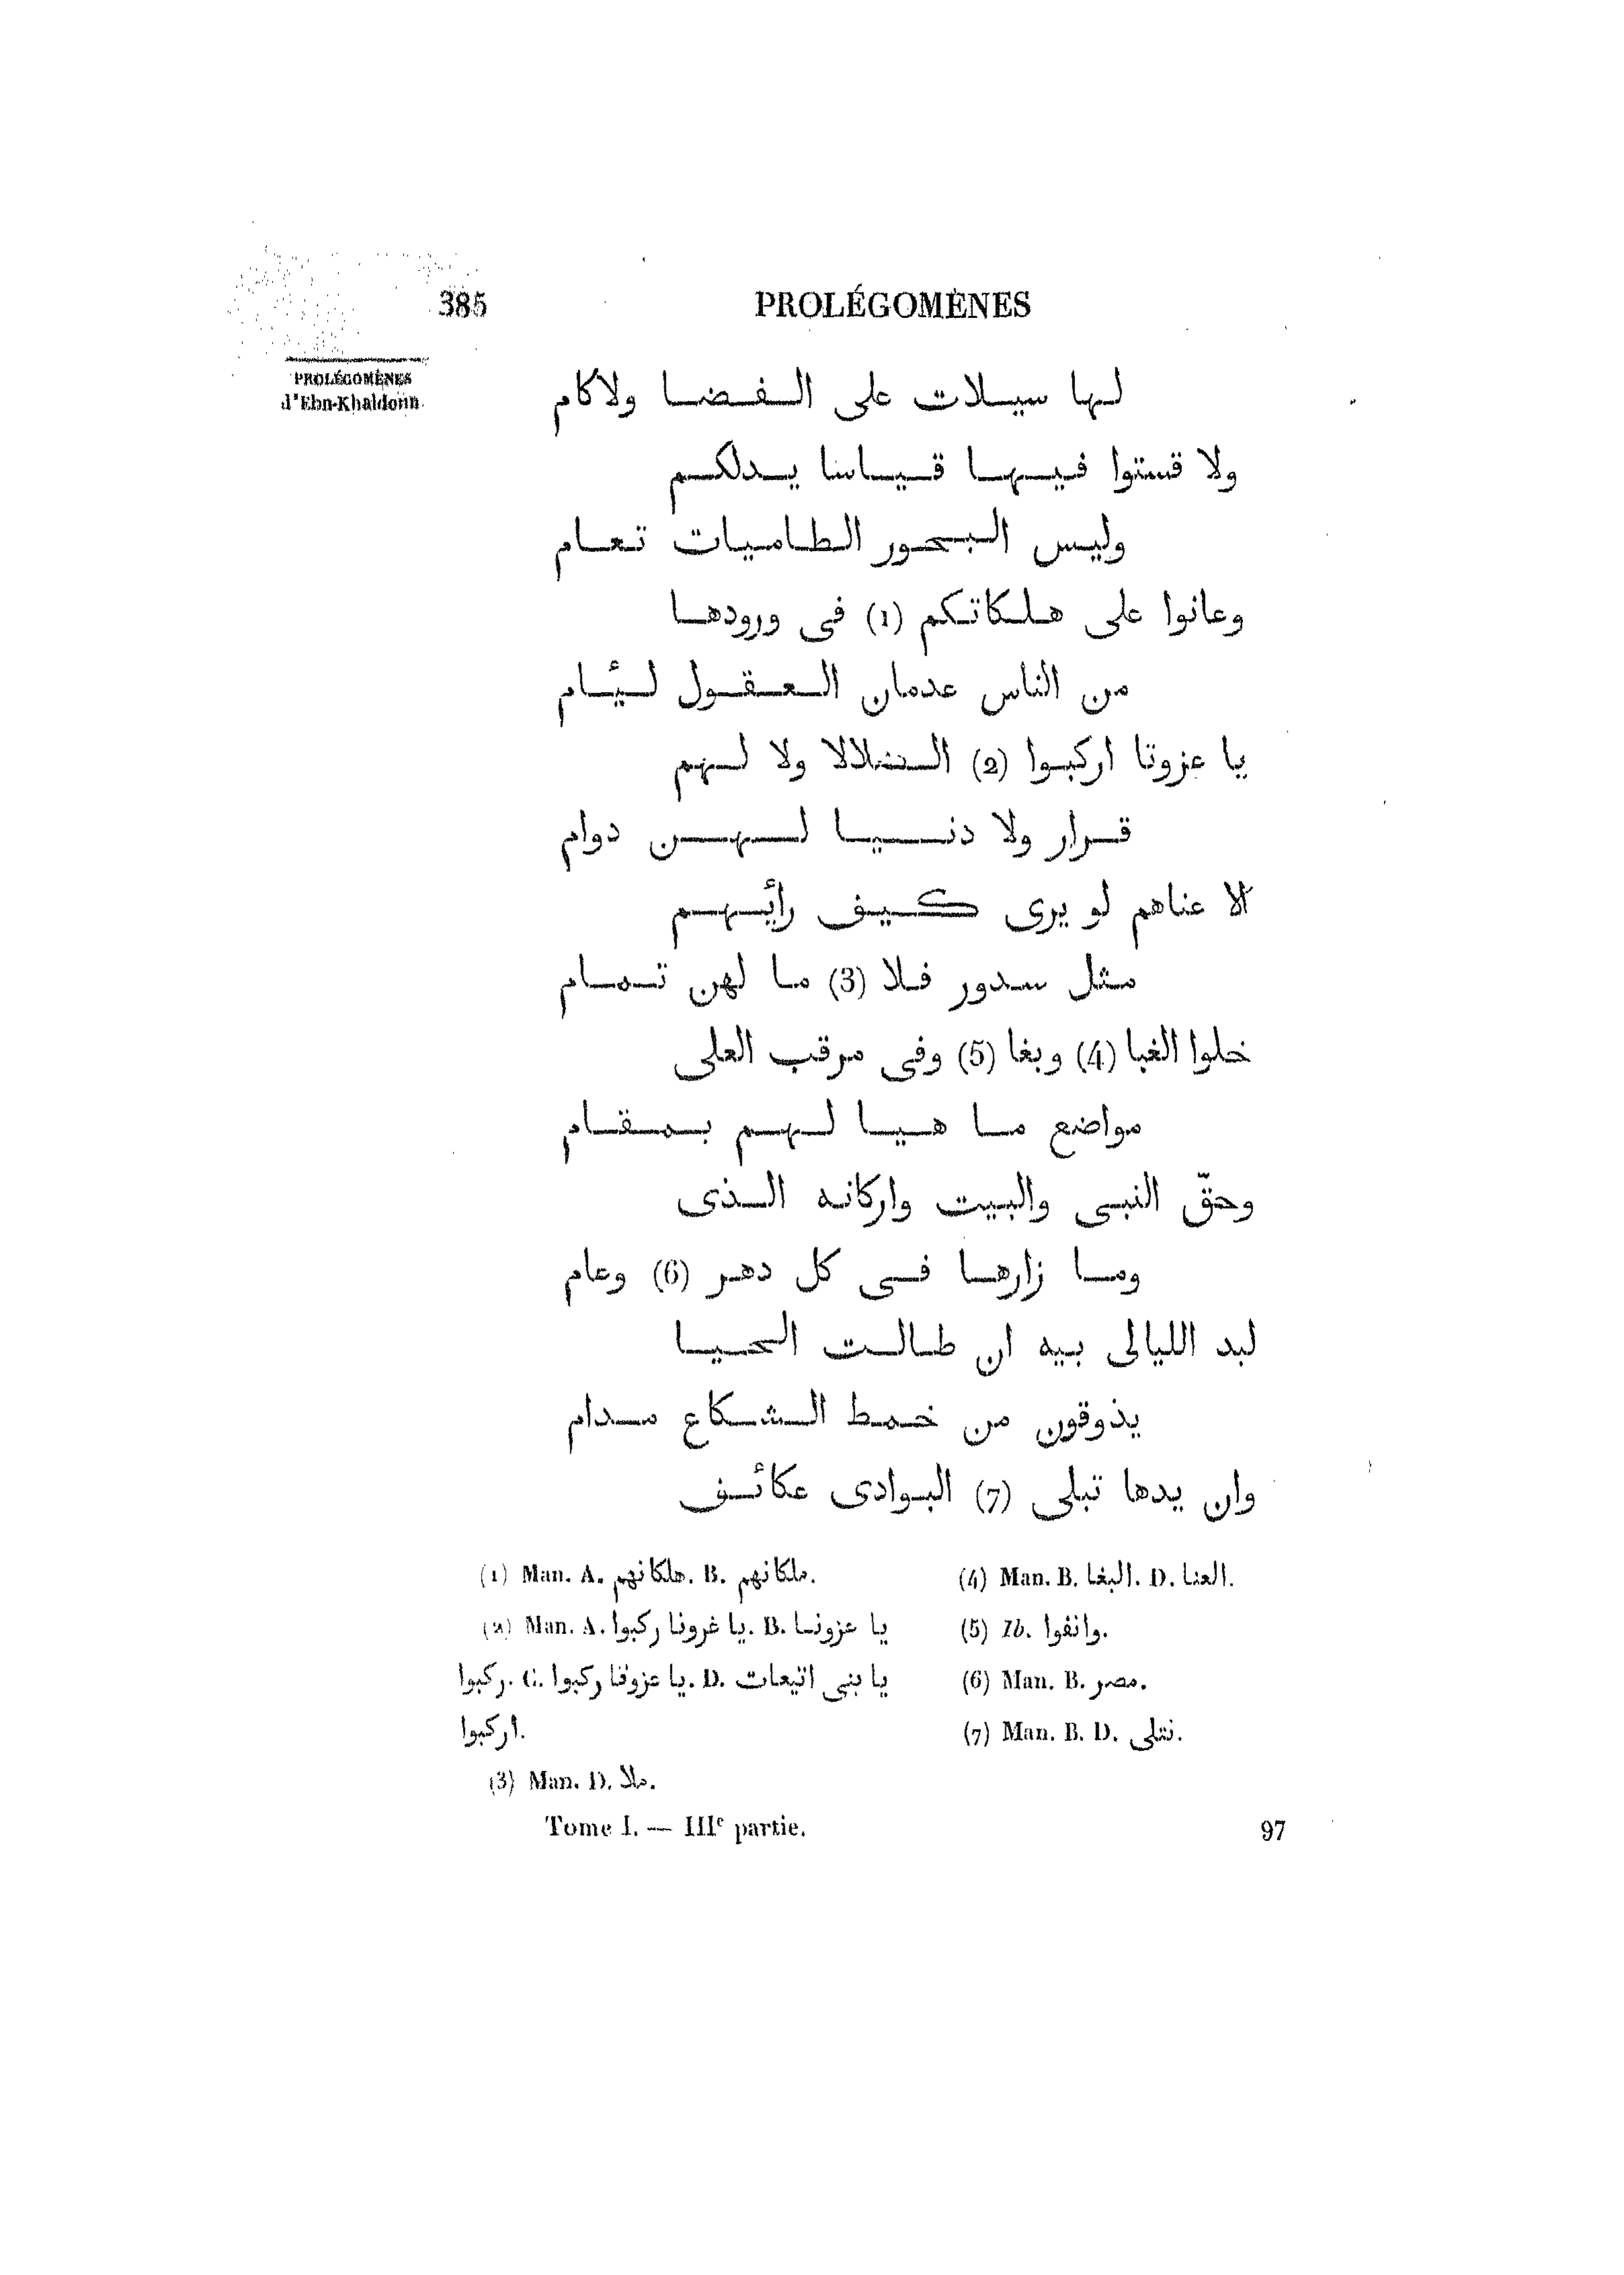 385
PROLÉGOMÈNES
PROLÉGOMÈNES
d'Ebn-Khaldoun.
لها سيلات على الفضا ولاكام
ولا قستوا فيها قياسا يدلكم
وليس البحور الطاميات تعام
وعانوا على هلكاتكم (1) فى ورودها
من الناس عدمان العقول ليُام
يا عزوتا اركبوا (2) الضلالا ولا لهم
قرار ولا دنيا لهن دوام
الا عناهم لو يرى كيف رأيهم
مثل سدور فلا (3) ما لهن تمام
خلوا الغبا (4) وبغا (5) وفى مرقب العلى
مواضع ما هيا لهم بمقام
وحقّ النبى والبيت واركانه الذى
وما زارها فى كل دهر (6) وعام
لبد الليالى بيه ان طالت الحيا
يذوقون من خمط الشكاع مدام
وان يدها تبلى (7) البوادى عكائف
(1) Man. A. هلكانهم. B. ملكانهم.
(2) Man. A. يا غرونا ركبوا. B. يا عزونا
ركبوا. C. يا عزوتنا ركبوا. D. يا بنى اتيعات
اركبوا.
(3) Man. D. ملا.
(4) Man. B. البغا. D. العنا.
(5) Ib. وانفوا.
(6) Man. B. مصر.
(7) Man. B. D. نتلى.
Tome I. — IIIe partie.
97